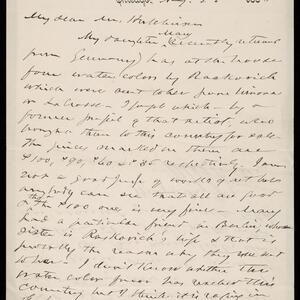 My dear Mr. Hutchinson
May
My daughter recently returned
from Germany has at the house
four water colors by Raskovich
which were sent to her from Verona
or Lacrosse - I forget which - by a
former pupil of that artist, who
brought them to this country for sale
The prices marked on them are
$100, $90, $60 & $85 respectively. I am
not a good judge of works of art but
anybody can see that all are good
& the $100 one is very fine - May
had a particular friend in Berlin, whose
sister is Raskovich's wife & that is
probably the reason why they were sent
to her - I don't know whether this
water color from has reached this
country but I think it is